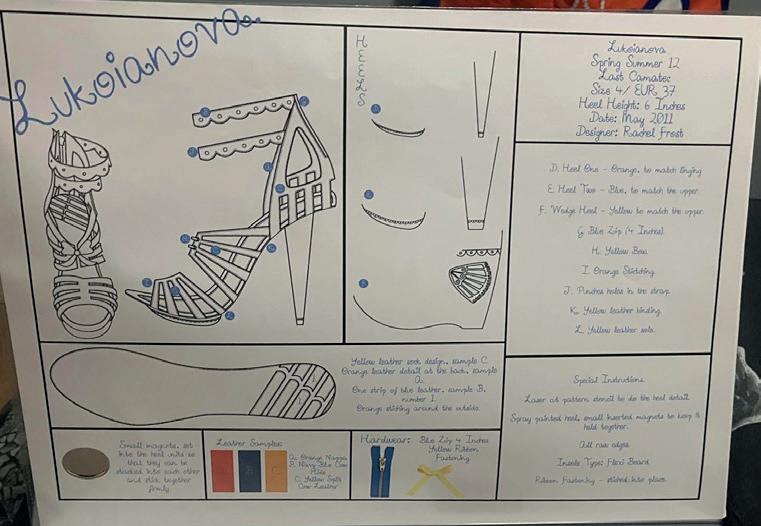 Lukoianova
HEELS
Lukoianova
Spring Summer 12
Last Camate:
Size 4/ EUR 37
Heel Height: 6 Inches
Date: May 2011
Designer: Rachel Frost
D. Heel One - Orange, to match
E. Heel Two - Blue, to match the upper.
F. Wedge Heel - Yellow to match the upper.
G. Blue Zip (4 Inches).
H. Yellow Bow.
I. Orange Stitching.
J. Punches holes in the strap.
K. Yellow leather binding.
L. Yellow leather sole.
Yellow leather sock design, sample C.
Orange leather detail at the back, sample
A.
One strip of blue leather, sample B,
number 1.
Orange stitching around the outside.
Special Instructions
Laser at pattern stencil to do the heel detail.
Spray painted heel, small inserted magnets to keep it
held together.
All raw edges.
Insole Type: Flexi Board.
Ribbon Fastening - stitched into place.
Small magnets, set
into the heel units so
that they can be
stacked into each other
and stick together
firmly.
Leather Samples:
A: Orange Nappa
B: Navy Blue Cow
Hide
C: Yellow Split
Cow Leather
Hardwear: Blue Zip 4 Inches
Yellow Ribbon
Fastening